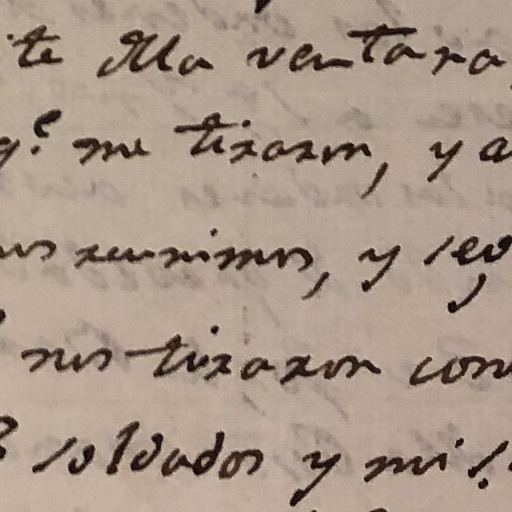 te Illa ventara
q.e me tiraron, y a
nos reunimos, y seg
nos tiraron con
soldados y mi